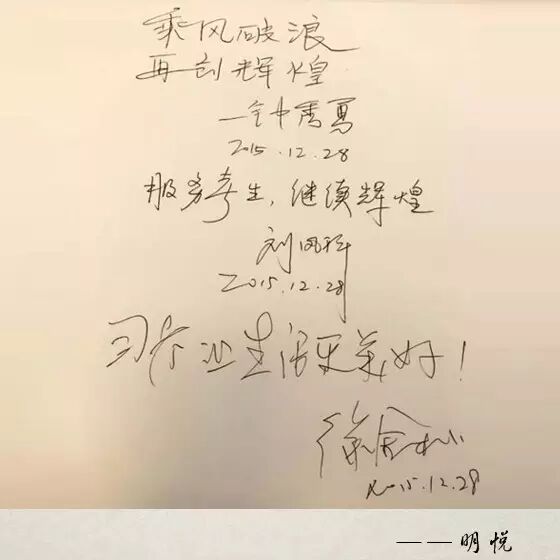 乘风破浪
再创辉煌
2015.12.28
服务考生,继续辉煌
刘凤科
2015.12.28
生活更美好!
徐金桂
2015.12.28
——明悦